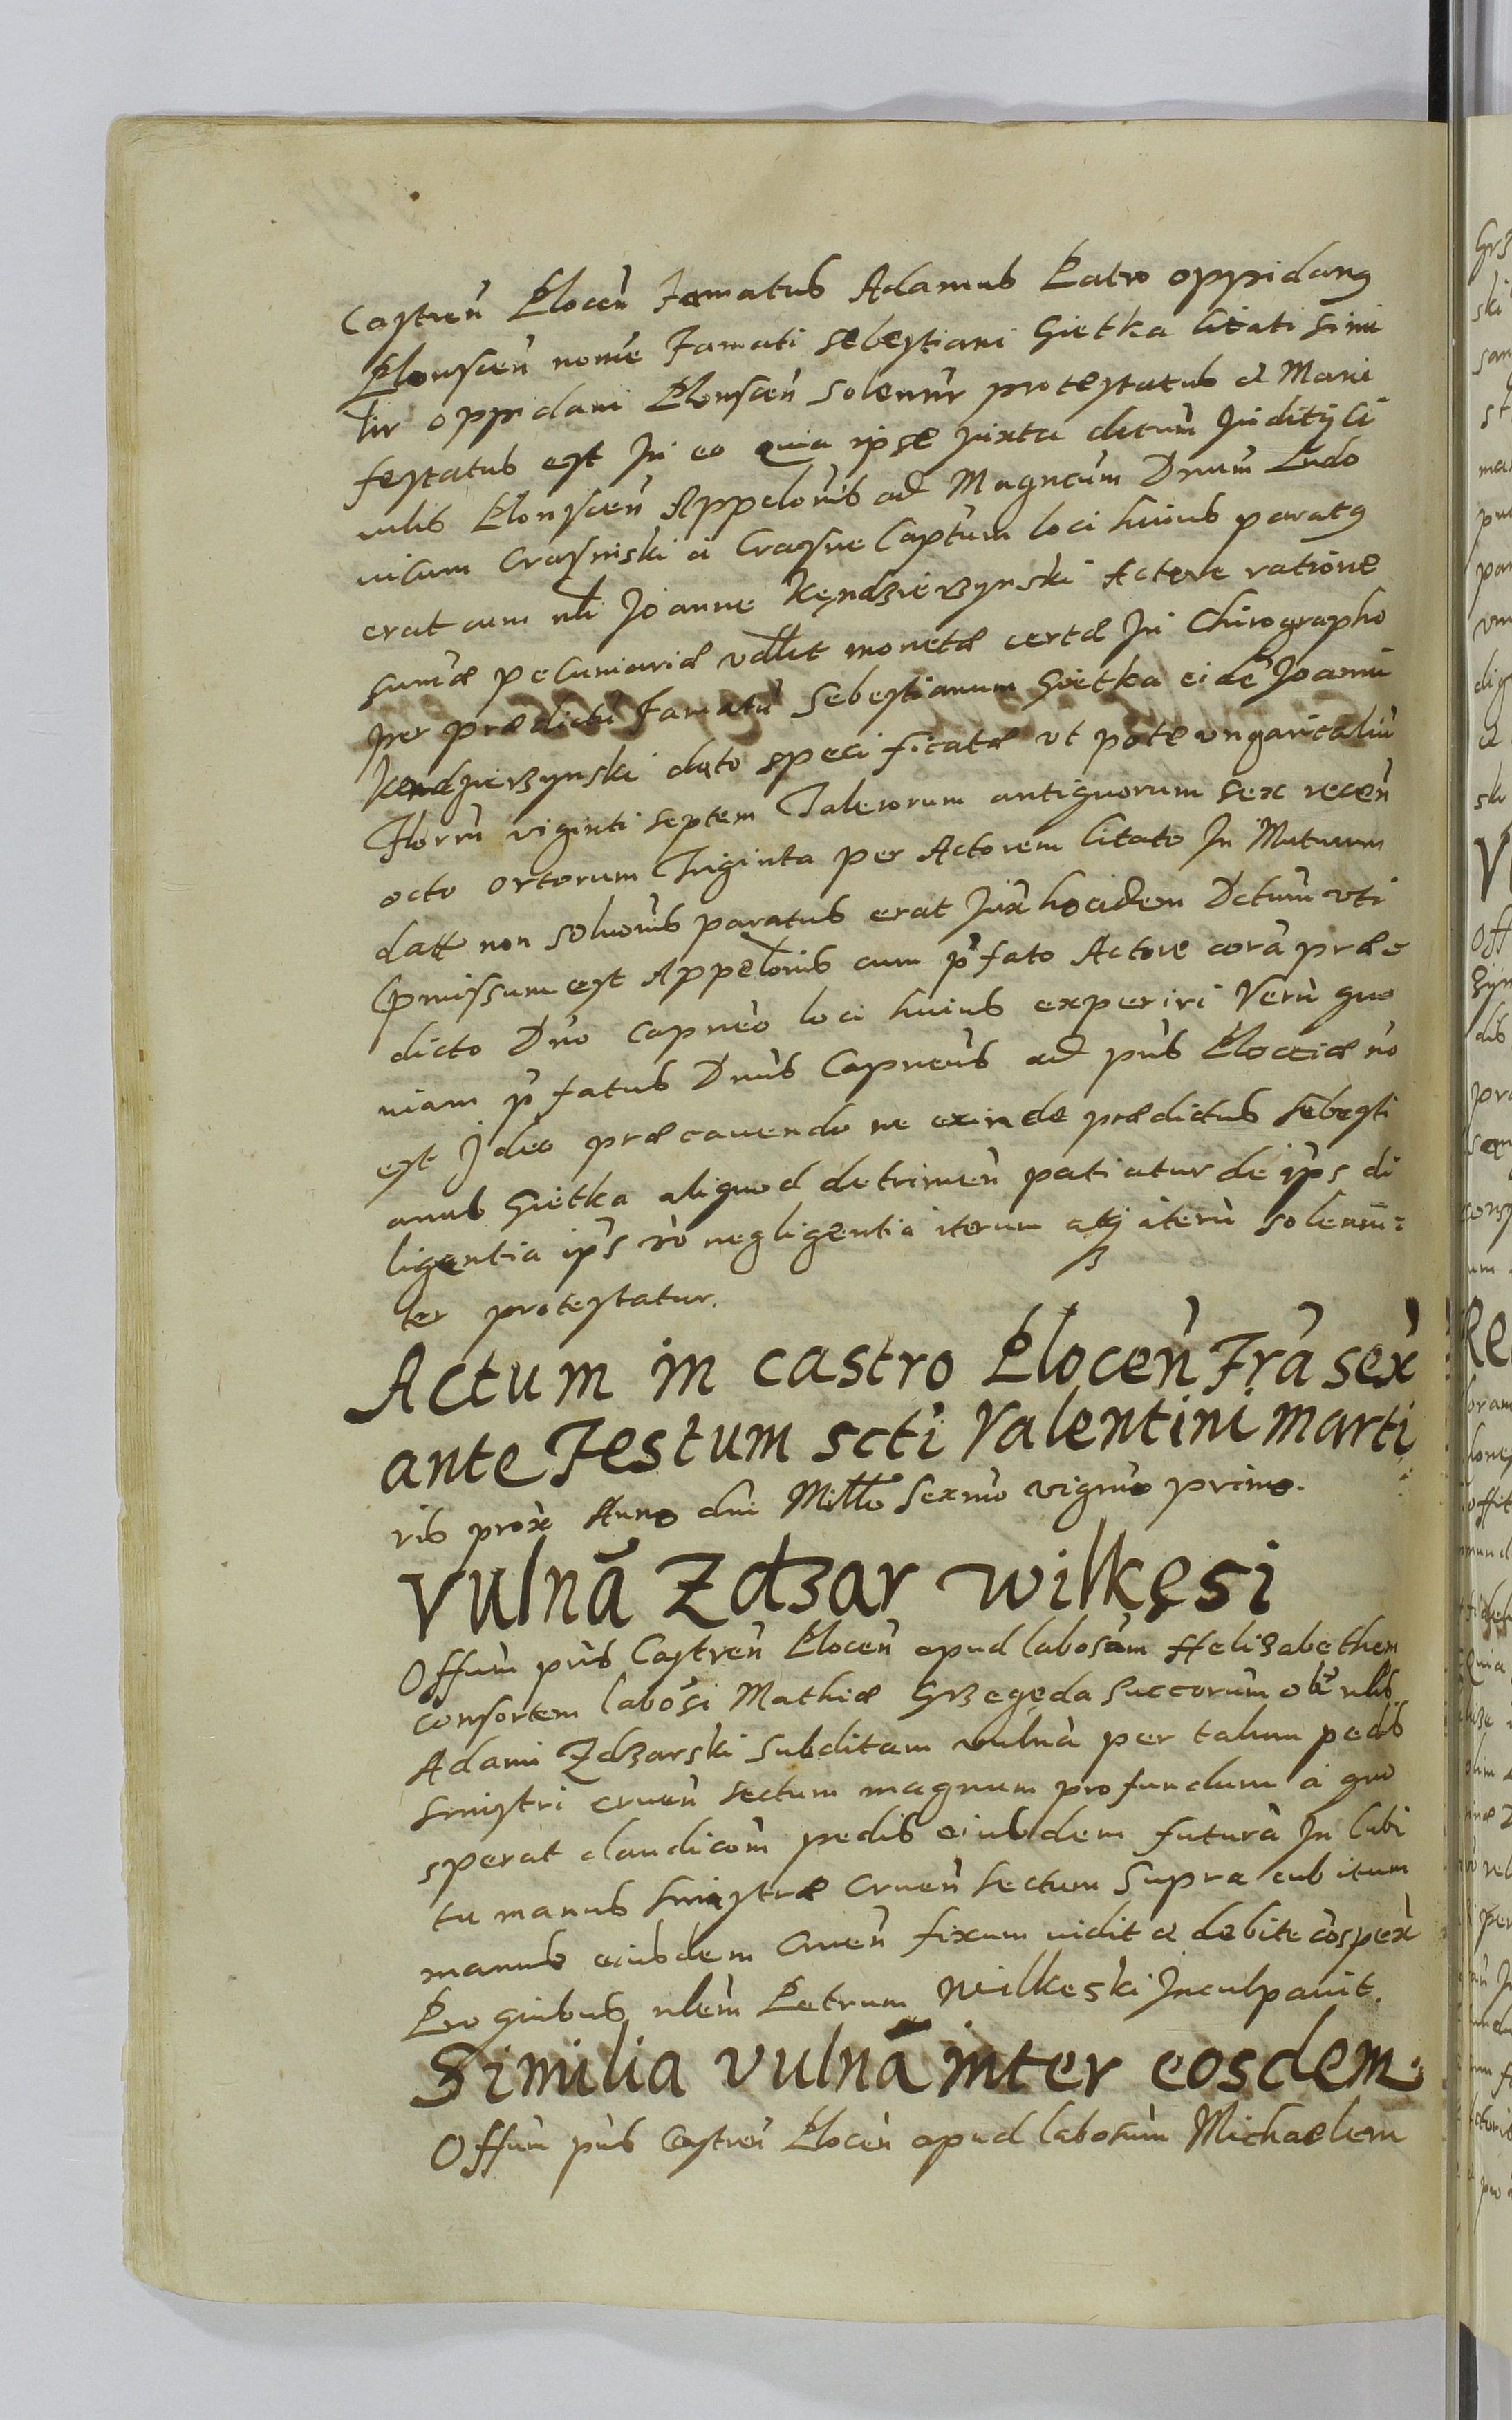 Castren̄ Plocen̄ Famatus Adamus Latro oppidanꝯ
Plonscen̄ nomīe Famati Sebestiani Gietka Citati simi
lir oppidani Plonscen̄ solennr protestatus et Mani
festatus est In eo quia ipse Juxta decum̄ Juditÿ Ci
uilis Plonscen̄ Appelonis ad Magncum̄ Dnum̄ Ludo
uicum Crasinski a Crasne Captum̄ loci huius paratꝯ
erat cum nli Joanne Kęndzierzynski Actore ratione
sumæ pecuniariæ vallit monetæ certæ In Chirographo
per prædictū Famatū Sebestianum Gietka eidē Joanni
Kendzierzynski dato specificatæ ut pote ungaricaliū
Florrū viginti septem Talerorum antiquorum sex recen̄
octo ortorum Triginta per Actorem Citato In Mutuum
datt non soluonis paratus erat Jux̄ hocidem Dctum̄ uti
Cpmissum est Appelonis cum p̄fato Actore corā præ
dicto Dno Capneo loci huius experiri Verū quo
niam p̄fatus Dnūs Capneus ad pn̄s Plociæ no
est Ideo præcauendo ne exinde prædictus Sebesti
anus Gietka aliquod detrimen̄ patiatur de ip̄s di
ligentia ip̄s vo negligentia iterum atqꝫ iterū solenni=
ter protestatur.
Actum in castro Plocen̄ Fr̄a sex̄
ante Festum scti Valentini marti
ris prox̄ Anno dni Millo Sexmo vigmo primo.
Vulnā Zdzar wilkęsi
Offum̄ pn̄s Castren̄ Plocen̄ apud labosam̄ Helizabethem
consortem labosi Mathiæ Grzegęda Succorum̄ olī nlis
Adami Zdzarski subditam vulnā per talum pedis
sinistri cruen̄ sectum magnum profundum a quo
sperat claudicom̄ pedis eiusdem futurā In Cubi
tu manus sinistræ cruen̄ sectum supra cubitum
manus eiusdem cruen̄ fixum uidit et debite cōspex̄
Pro quibus nlem̄ Petrum Wilkeski Inculpauit.
Similia vulnā inter eosdem.
Offum̄ pn̄s Castren̄ Plocen̄ apud labosum̄ Michaelem